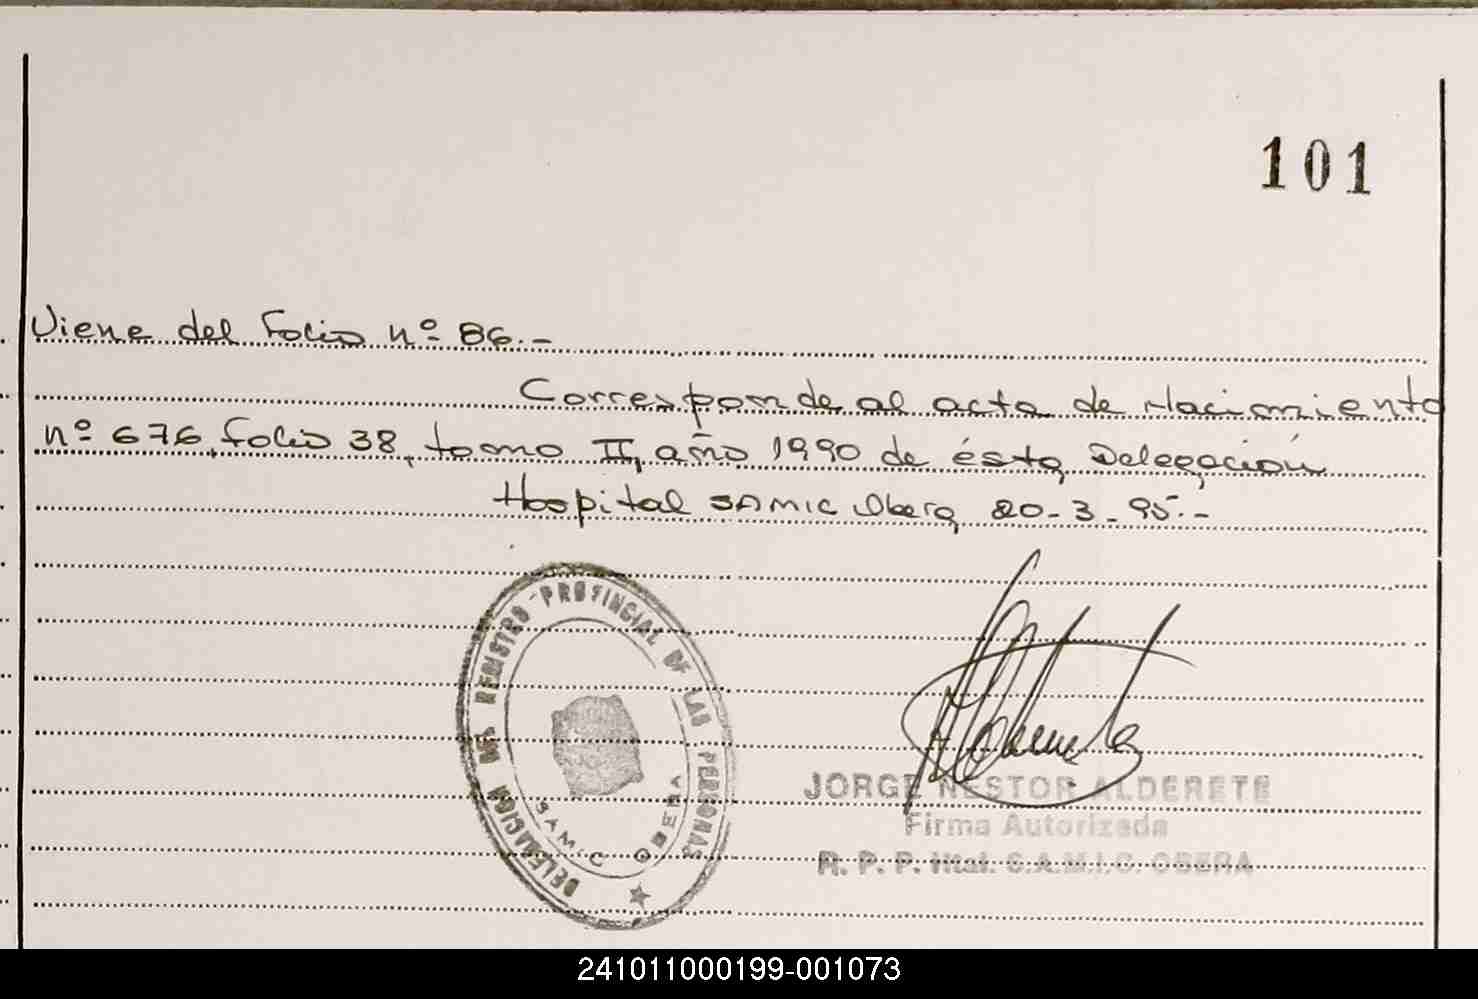 101
Viene del folio nº 86.-
Corresponde al acta de Nacimiento
nº 676, folio 38, tomo II, año 1990 de ésta Delegación
Hospital SAMIC Oberá, 20-3-95.-
DELEGACION DEL REGISTRO PROVINCIAL DE LAS PERSONAS
SAMIC OBERA
JORGE NESTOR ALDERETE
Firma Autorizada
R. P. P. Htal. S.A.M.I.C. OBERA
241011000199-001073